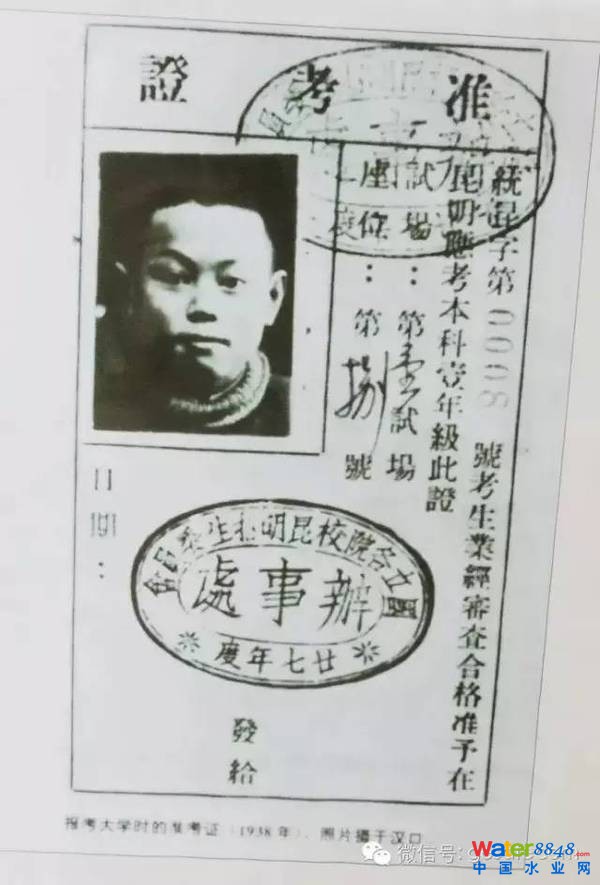 准考證
統昆字第0008號考生業經審查合格准予在
昆明應考本科壹年級此證
試場：第壹試場
座位：第捌號
日期：
國立各院校昆明招生委員會
辦事處
廿七年度
發給
报考大学时的准考证（1938年），照片摄于汉口
微信号:
Water8848.com
中国水业网